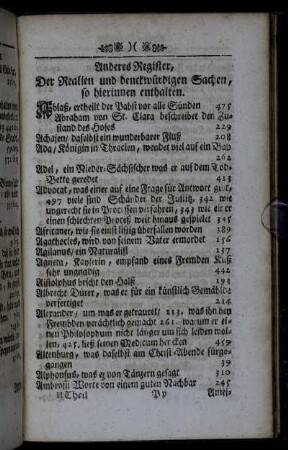 )(
Anderes Register,
Der Realien und denckwürdigen Sachen,
so hierinnen enthalten.
Ablaß, ertheilt der Pabst vor alle Sünden 475
Abraham von St. Clara beschreibet den Zu-
stand des Hofes 229
Achajen, daselbst ein wunderbarer Fluß 208
Ada, Königin in Thracien, wendet viel auf ein Bad
262
Adel, ein Nieder-Sächsischer was er auf dem Tod-
Bette geredet 423
Advocat, was einer auf eine Frage für Antwort gibt,
497 viele sind Schänder der Justitz, 342 wie
ungerecht sie in Processen verfahren, 343 wie er
einen schlechten Proceß weit hinaus gespielet 345
Africaner, wie sie einst listig überfallen worden 389
Agathocles, wird von seinem Vater ermordet 156
Agilanus, ein Naturalist 137
Agneta, Kayserin, empfand eines Fremden Kuß
sehr ungnädig 442
Aistolphus bricht den Halß 191
Albrecht Dürer, was er für ein künstlich Gemählde
verfertiget 214
Alexander, um was er getrauret, 113. was ihn bey
Frembden verächtlich gemacht 261. warum er ei-
nen Philosophum nicht länger um sich leiden wol-
len, 425. ließ seinen Medicum hencken 459
Altenburg, was daselbst am Christ-Abende fürge-
gangen 39
Alphonsus, was er von Tänzern gesagt 310
Ambrosii Worte von einem guten Nachbar 245
II Theil Pp Amei-